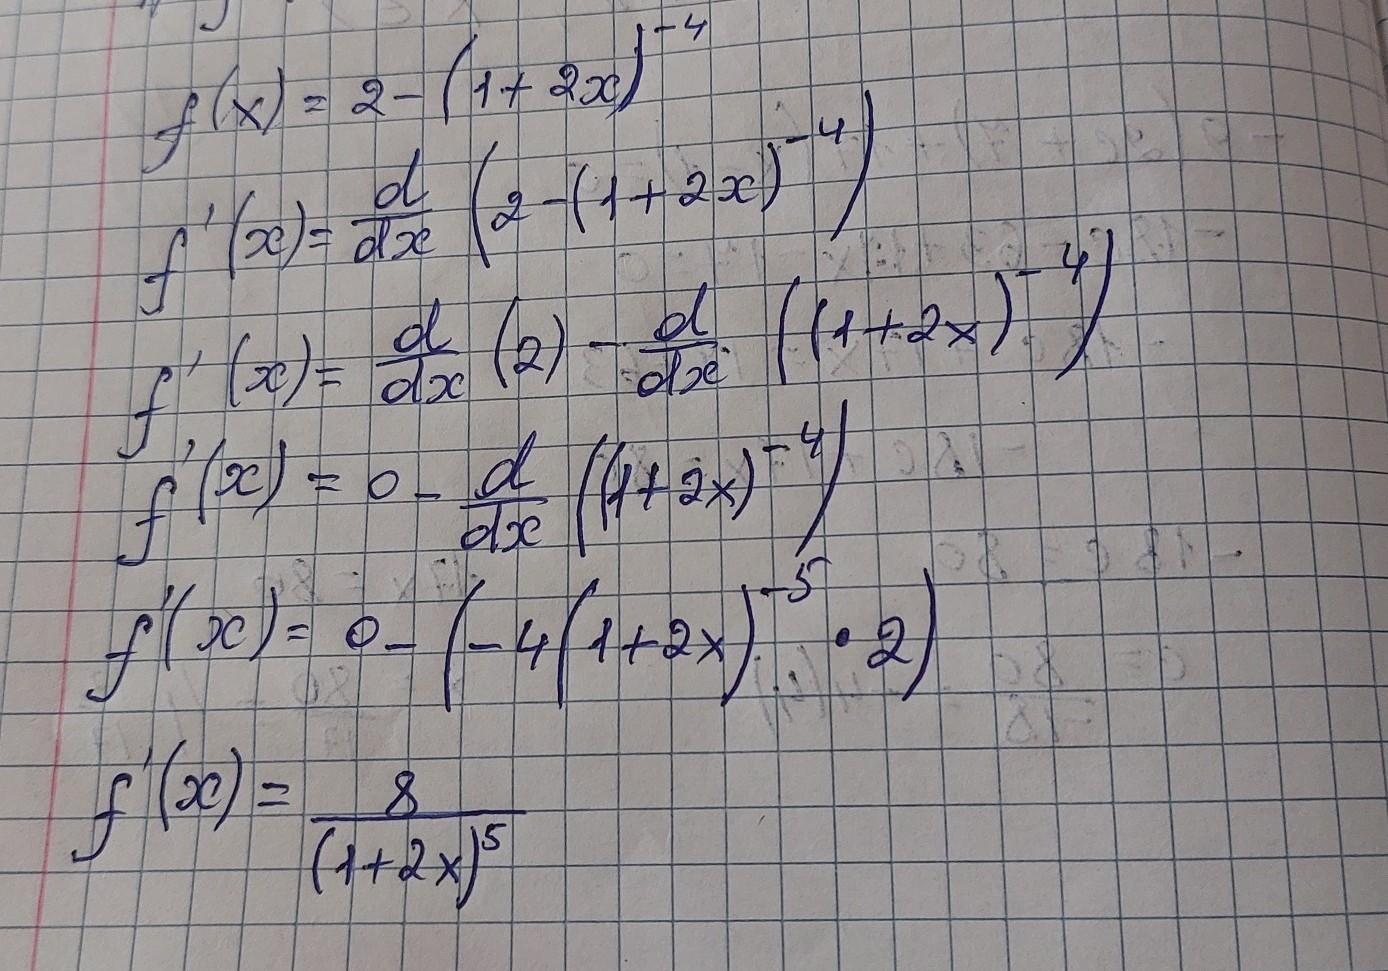 f(x) = 2 - (1 + 2x)^-4
f'(x) = d/dx (2 - (1 + 2x)^-4)
f'(x) = d/dx (2) - d/dx ((1 + 2x)^-4)
f'(x) = 0 - d/dx ((1 + 2x)^-4)
f'(x) = 0 - (-4(1 + 2x)^-5 · 2)
f'(x) = 8/(1 + 2x)^5